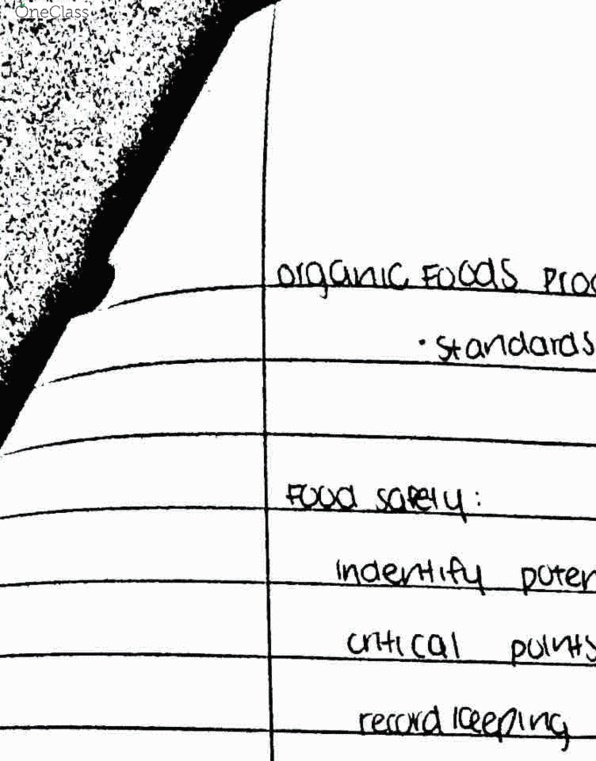 OneClass
organic Foods Proc
• standards
Food safety:
indentify poten
critical points
record keeping